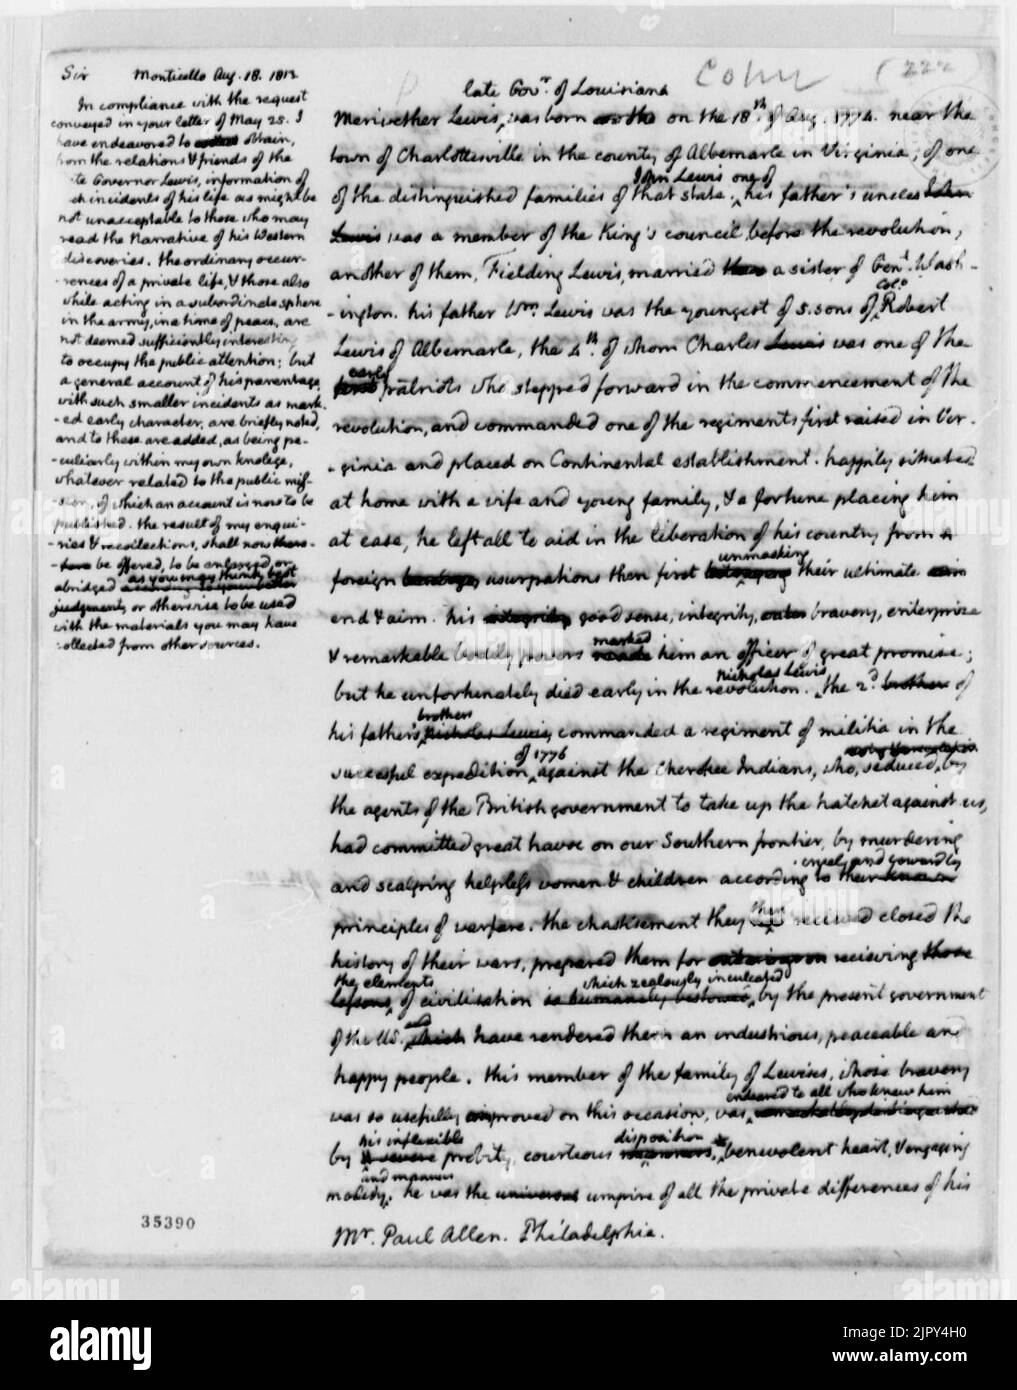 Sir Monticello Aug. 18. 1813.
In compliance with the request
conveyed in your letter of May 25. I
have endeavored to obtain,
from the relations & friends of the
te Governor Lewis, information of
ch incidents of his life as might be
not unacceptable to those who may
read the Narrative of his Western
discoveries. the ordinary occur-
-rences of a private life, & those also
while acting in a subordinate sphere
in the army, in a time of peace, are
not deemed sufficiently interesting
to occupy the public attention; but
a general account of his parentage,
with such smaller incidents as mark-
-ed early character, are briefly noted,
and to these are added, as being pe-
-culiarly within my own knolege,
whatever related to the public mis-
-sion, of which an account is now to be
published. the result of my enqui-
-ries & recollections, shall now there-
-fore be offered, to be enlarged, or
as you may think best
abridged according to your better
judgment, or otherwise to be used
with the materials you may have
collected from other sources.
Cohn (222)
late Govr. of Louisiana
Meriwether Lewis, was born on the on the 18th. of Aug. 1774. near the
town of Charlottesville in the county of Albemarle in Virginia, of one
John Lewis one of
of the distinguished families of that state. his father's uncles John
Lewis was a member of the King's council, before the revolution,
another of them, Fielding Lewis, married a sister of Genl. Wash-
Colo.
-ington. his father Wm. Lewis was the youngest of 5. sons of Robert
Lewis of Albemarle, the 4th. of whom Charles Lewis was one of the
early
first patriots who stepped forward in the commencement of the
revolution, and commanded one of the regiments first raised in Vir-
-ginia and placed on Continental establishment. happily situated
at home with a wife and young family, & a fortune placing him
at ease, he left all to aid in the liberation of his country from
unmasking
foreign usurpations then first their ultimate aim
end & aim. his integrity good sense, integrity, bravery, enterprize
marked
& remarkable bodily powers made him an officer of great promise;
Nicholas Lewis
but he unfortunately died early in the revolution. the 2d. brother of
brothers
his father's Nicholas Lewis, commanded a regiment of militia in the
of 1776
succesful expedition, against the Cherokee Indians, who, seduced, by
the agents of the British government to take up the hatchet against us,
had committed great havoc on our Southern frontier, by murdering
cruelly and cowardly
and scalping helpless women & children according to their known
principles of warfare. the chastisement they then recieved closed the
history of their wars, prepared them for recieving those
the elements which zealously inculcated
lessons, of civilisation is humanely bestowed, by the present government
and
of the US. which have rendered them an industrious, peaceable and
happy people. this member of the family of Lewises, whose bravery
endeared to all who knew him
was so usefully improved on this occasion, was remarkably distinguished
his inflexible disposition
by a severe probity, courteous manners, benevolent heart, & engaging
and manners
modesty, he was the universal umpire of all the private differences of his
Mr. Paul Allen. Philadelphia.
35390
a
alamy
alamy
Image ID: 2JPY4H0
www.alamy.com